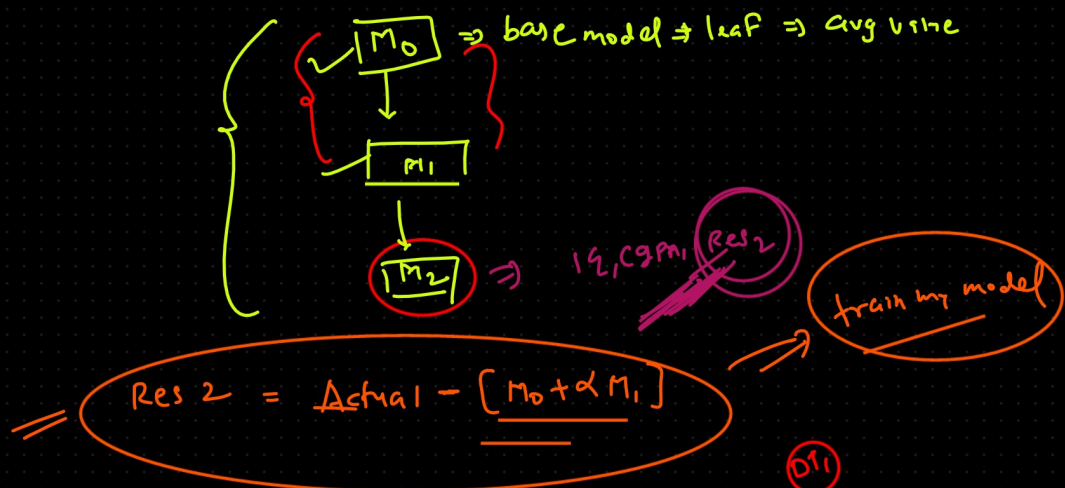 M0 ⇒ base model ⇒ leaf ⇒ avg value
M1
M2 ⇒ iq, cgpa, Res2
train my model
Res 2 = Actual - [M0 + α M1]
DT1